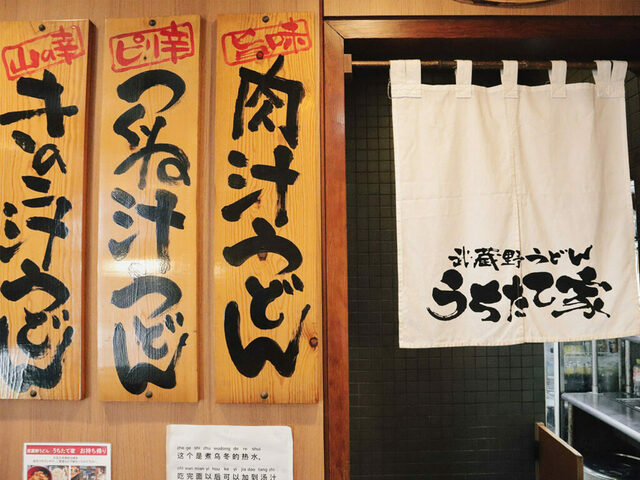 山の幸
きのこ汁うどん
ピリ辛
つくね汁うどん
旨味
肉汁うどん
武蔵野うどん
うちたて家
武蔵野うどん うちたて家 お持ち帰り
zhe ge shi zhu wudong de re shui
这个是煮乌冬的热水。
chi wan mian yi hou ke yi jia dao tang zhi
吃完面以后可以加到汤汁